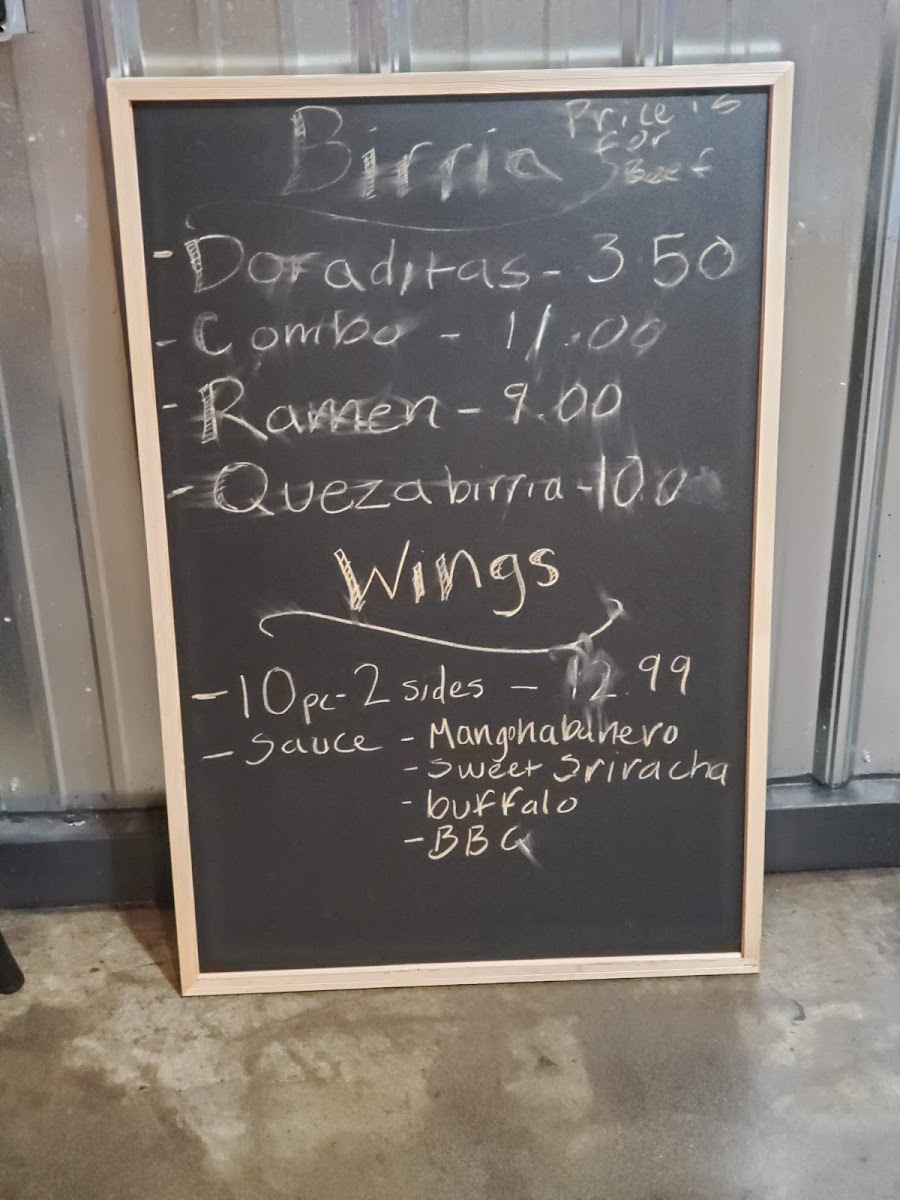 Birria
Price is
for
Beef
- Doraditas - 3.50
- Combo - 11.00
- Ramen - 9.00
- Quezabirria - 10.0
Wings
- 10pc - 2 sides - 12.99
- Sauce - Mangohabanero
- Sweet Sriracha
- buffalo
- BBQ